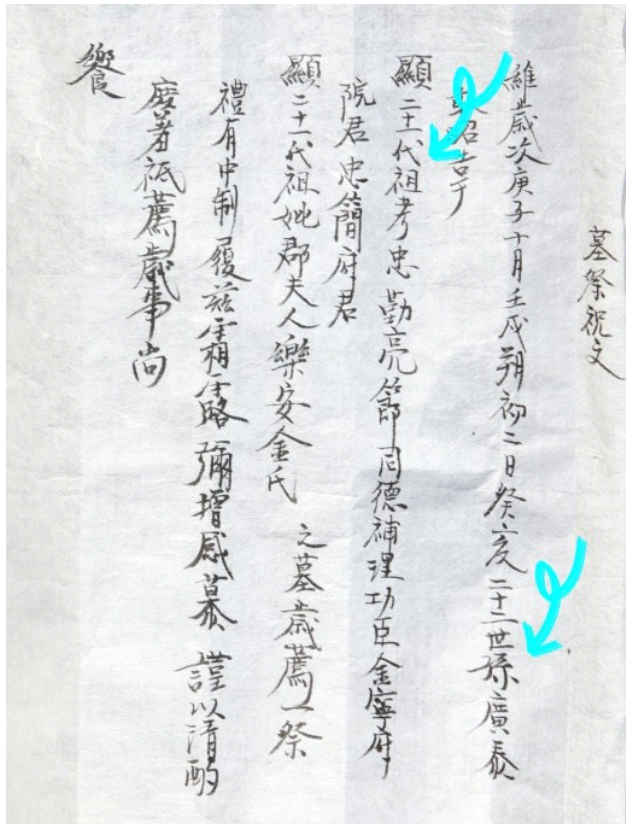 墓祭祝文
維歲次庚子十月壬戌朔初二日癸亥二十二世孫廣泰
敢昭告于
顯二十一代祖考忠勤亮節同德補理功臣金寧府
院君忠簡府君
顯二十一代祖妣郡夫人樂安金氏 之墓歲薦一祭
禮有中制履茲霜露彌增感慕 謹以清酌
庶羞祗薦歲事尚
饗